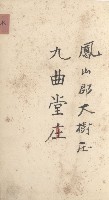 鳳山郡大樹庄
九曲堂庄